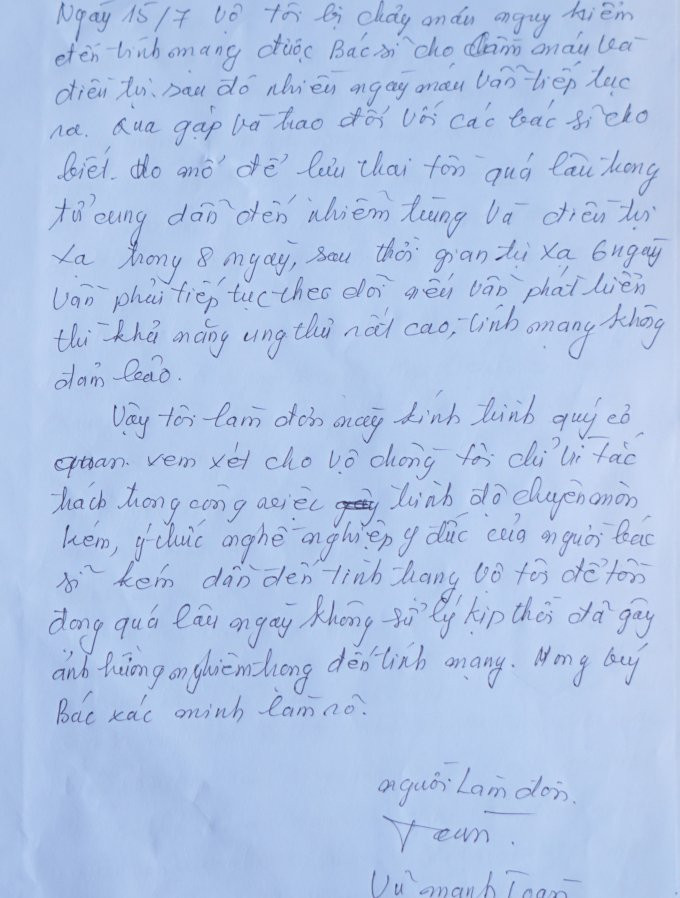 Ngày 15/7 vợ tôi bị chảy máu nguy hiểm
đến tính mạng được Bác sĩ cho cầm máu và
điều trị. sau đó nhiều ngày máu vẫn tiếp tục
ra. Qua gặp và trao đổi với các bác sĩ cho
biết. do mổ đẻ lưu thai tồn quá lâu trong
tử cung dẫn đến nhiễm trùng và điều trị
xạ trong 8 ngày, sau thời gian trị xạ 6 ngày
vẫn phải tiếp tục theo dõi nếu vẫn phát hiển
thì khả năng ung thư rất cao, tính mạng không
đảm bảo.
Vậy tôi làm đơn này kính trình quý cơ
quan. xem xét cho vợ chồng tôi chỉ vì tắc
trách trong công việc trình độ chuyên môn
kém, ý thức nghề nghiệp y đức của người bác
sĩ kém dẫn đến tình trạng vợ tôi để tồn
đọng quá lâu ngày không sử lý kịp thời đã gây
ảnh hưởng nghiêm trọng đến tính mạng. Mong quý
Bác xác minh làm rõ.
người làm đơn.
Toan.
Vũ mạnh Toàn